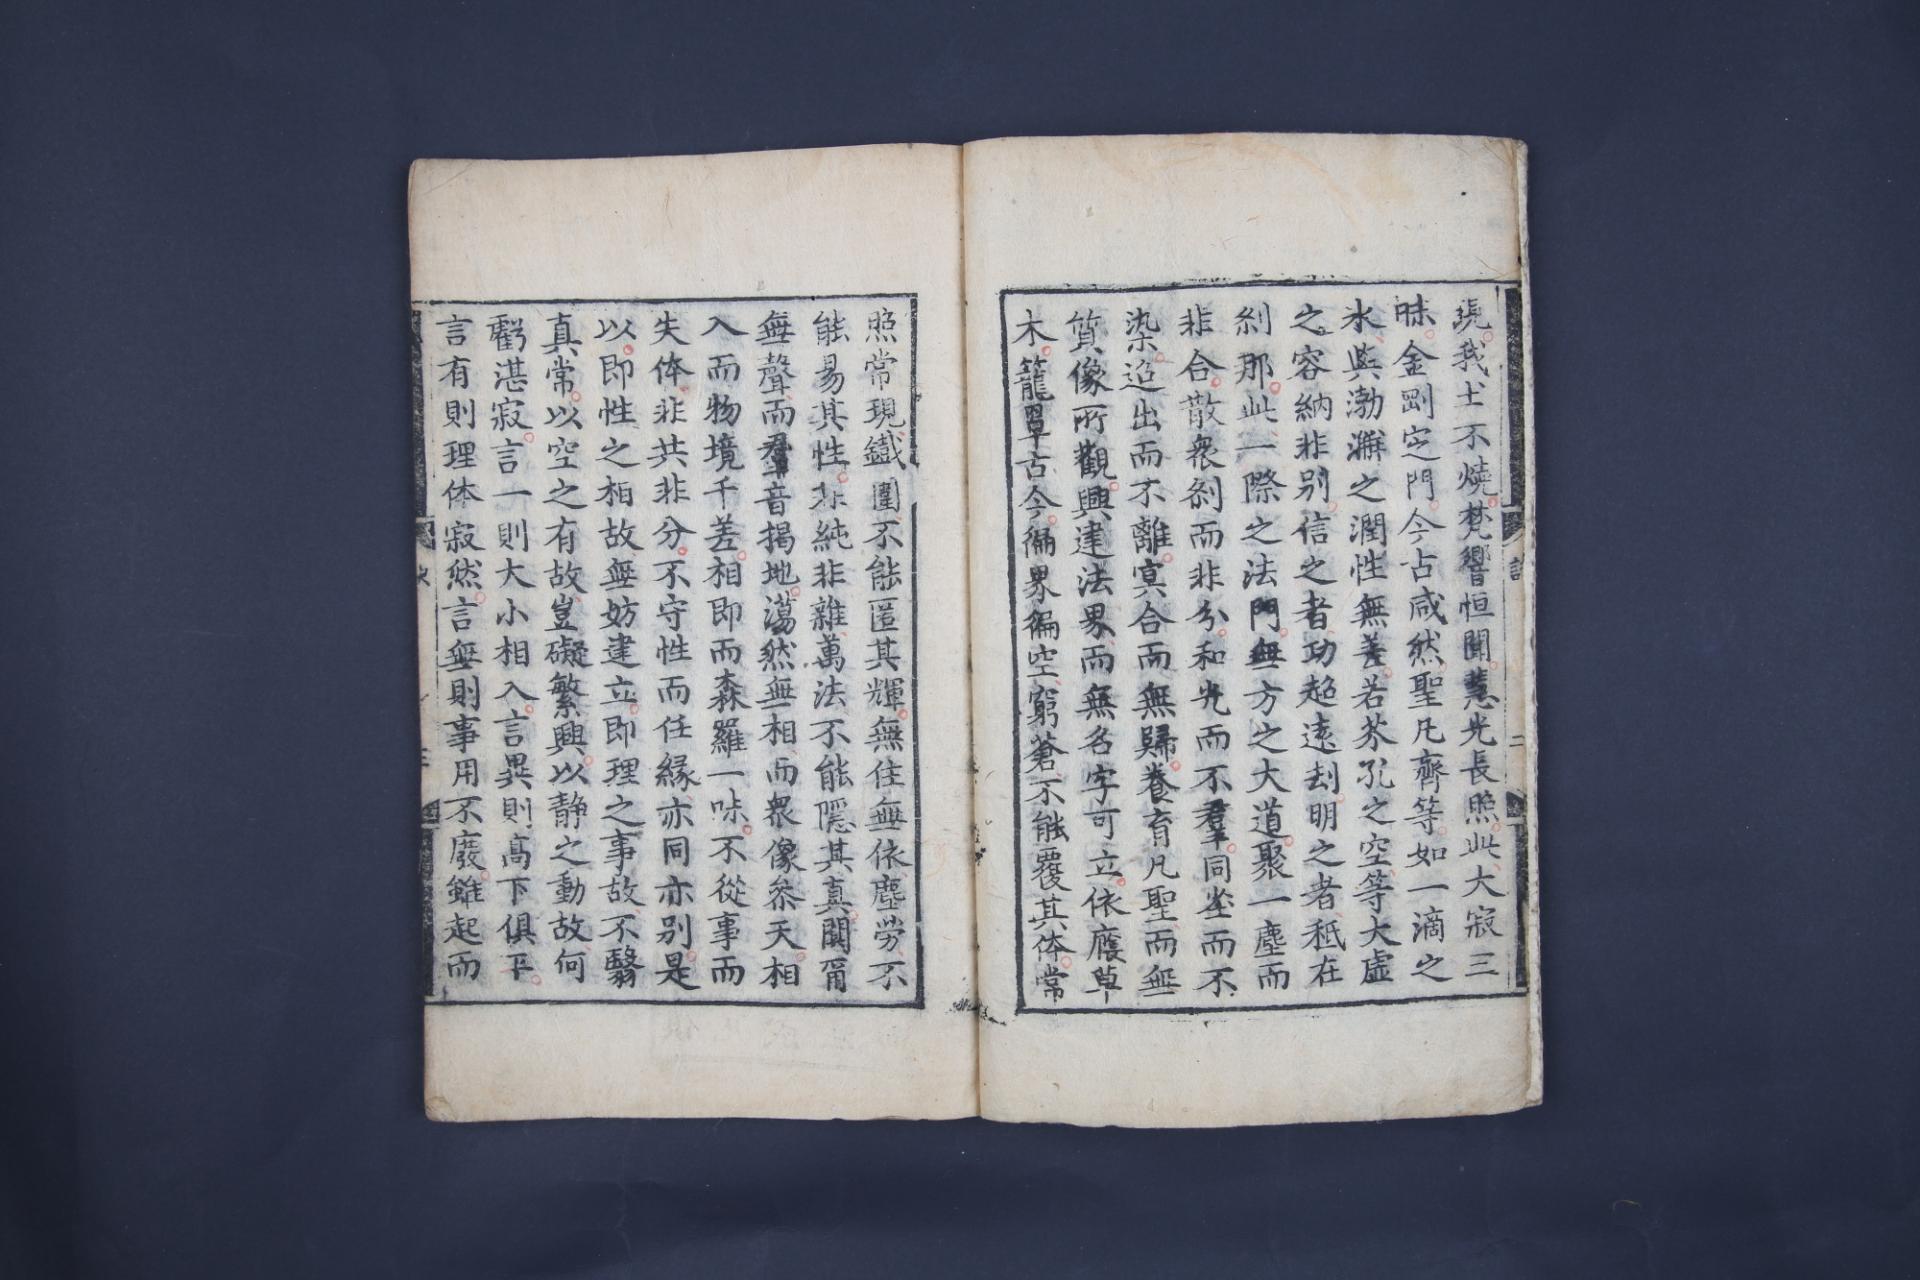 琉。我土不燒。梵響恒聞。慧光長照。此大寂三
昧。金剛定門。今古咸然。聖凡齊等。如一滴之
水。與渤澥之潤性無差。若芥孔之空。等大虛
之容納非別。信之者。功超遠刼。明之者。秪在
刹那。此一際之法門。無方之大道。聚一塵而
非合。散衆刹而非分。和光而不羣。同塵而不
染。迢出而不離。冥合而無歸。養育凡聖。而無
質像所觀。興建法界。而無名字可立。依廕草
木。籠罩古今。徧界徧空。窮蒼不能覆其体。常
照常現。鐵圍不能匿其輝。無住無依。塵勞不
能易其性。非純非雜。萬法不能隱其真。闃爾
無聲。而羣音揭地。蕩然無相。而衆像叅天。相
入而物境千差。相即而森羅一味。不從事而
失体。非共非分。不守性而任緣。亦同亦別。是
以。即性之相。故無妨建立。即理之事。故不翳
真常。以空之有。故豈礙繁興。以静之動。故何
虧湛寂。言一則大小相入。言異則高下俱平。
言有則理体寂然。言無則事用不廢。雖起而
二